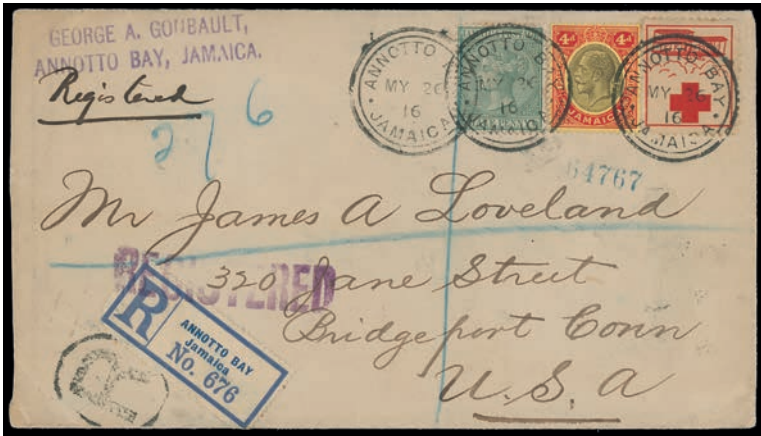 GEORGE A. GOUBAULT,
ANNOTTO BAY, JAMAICA.
Registered
276
ANNOTTO
MY 26
16
JAMAICA
ANNOTTO BAY
MY 26
16
JAMAICA
4d 4d
JAMAICA
ANNOTTO BAY
MY 26
16
JAMAICA
64767
Mr James A Loveland
REGISTERED
320 Jane Street
Bridgeport Conn
U.S.A
R
ANNOTTO BAY
Jamaica
No. 676